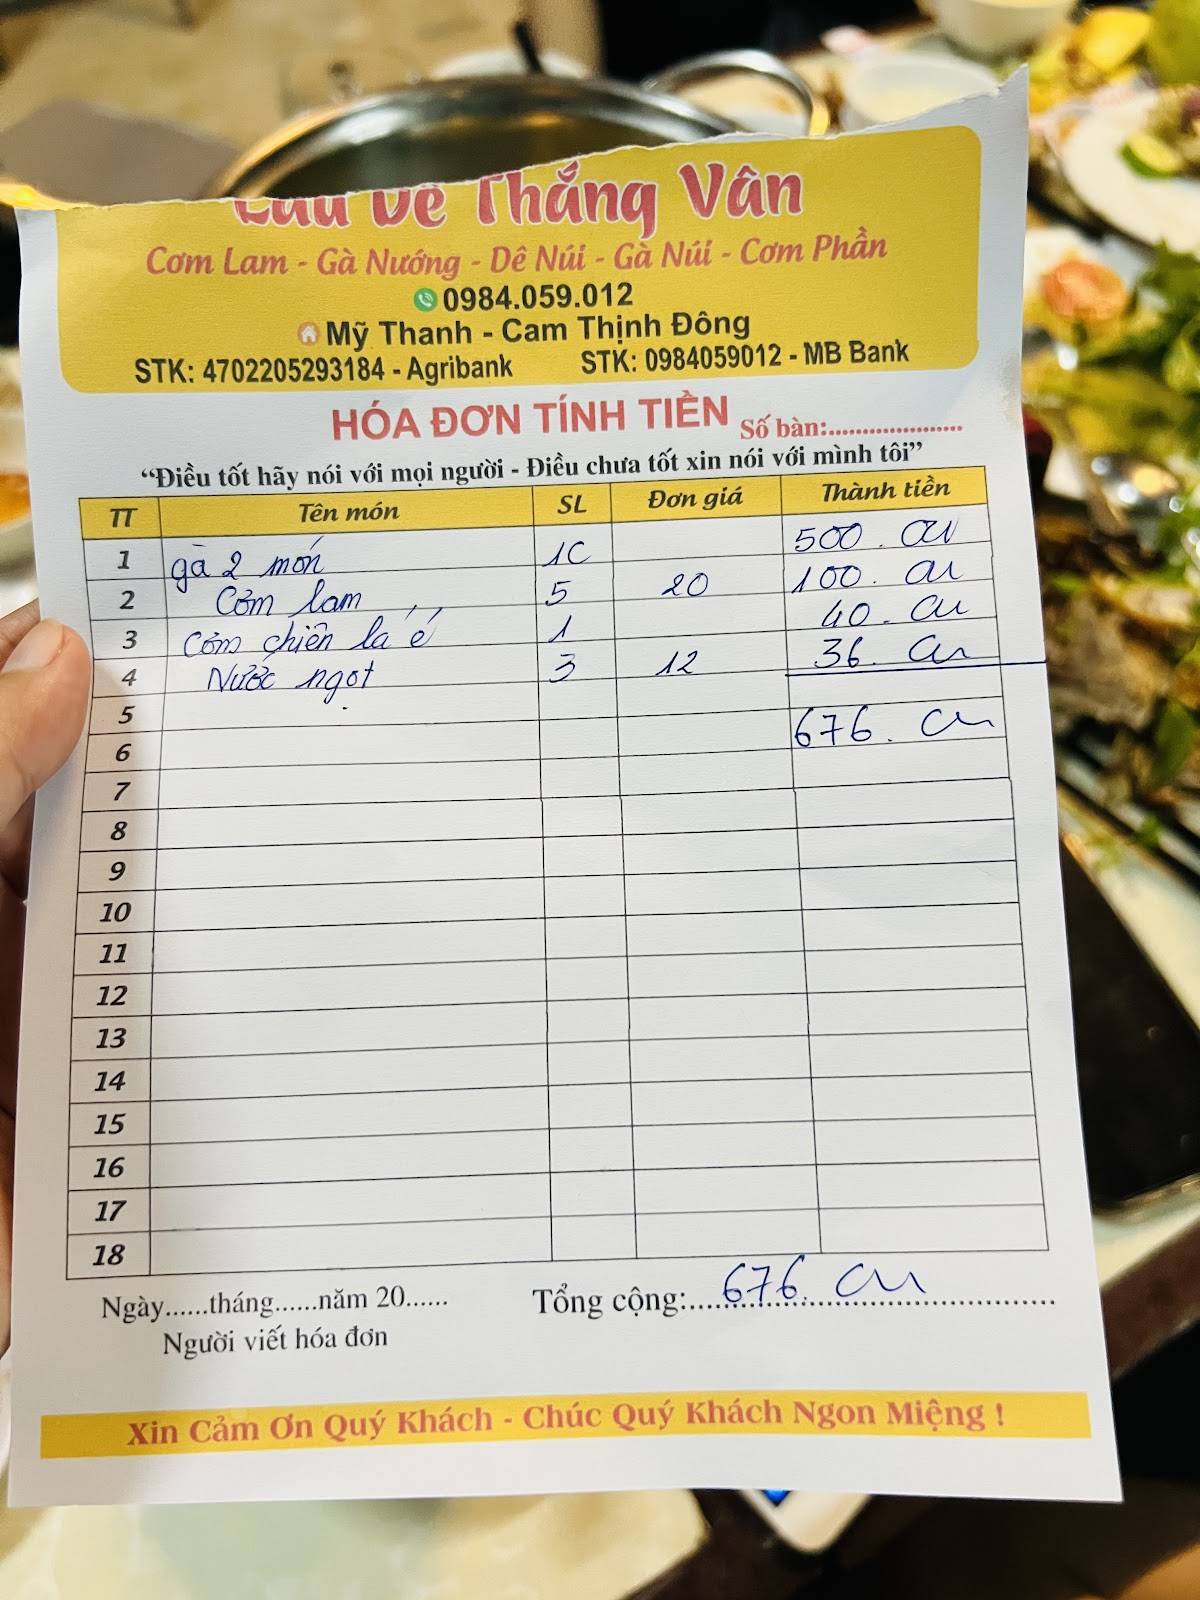 Lẩu Dê Thắng Vân
Cơm Lam - Gà Nướng - Dê Núi - Gà Núi - Cơm Phần
0984.059.012
Mỹ Thanh - Cam Thịnh Đông
STK: 4702205293184 - Agribank STK: 0984059012 - MB Bank
HÓA ĐƠN TÍNH TIỀN Số bàn:
“Điều tốt hãy nói với mọi người - Điều chưa tốt xin nói với mình tôi”
TT Tên món SL Đơn giá Thành tiền
1 gà 2 món 1C 500.
2 Cơm lam 5 20 100.
3 Cơm chiên lá é 1 40.
4 Nước ngọt 3 12 36.
5
6 676.
7
8
9
10
11
12
13
14
15
16
17
18
Ngày......tháng......năm 20...... Tổng cộng: 676.
Người viết hóa đơn
Xin Cảm Ơn Quý Khách - Chúc Quý Khách Ngon Miệng !